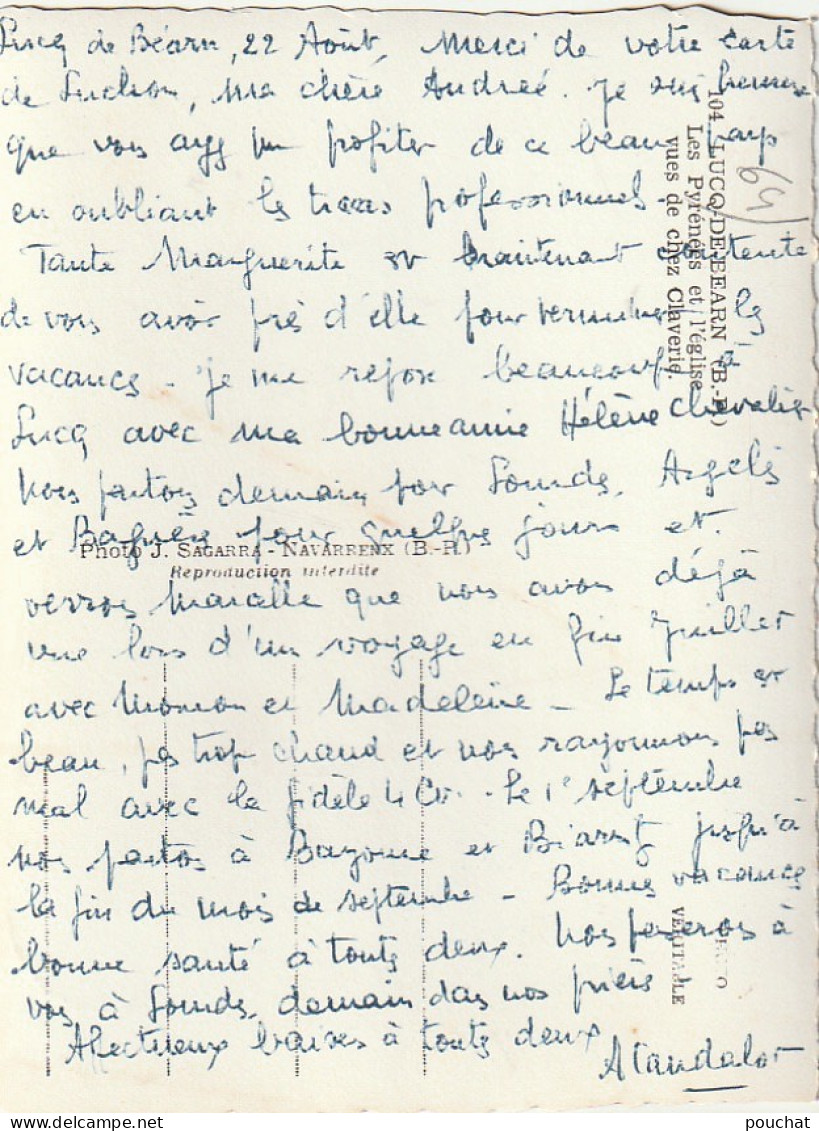 Lucq de Béarn, 22 Août, Merci de votre carte
de Luchon, ma chère Andrée. Je suis heureuse
que vous ayez pu profiter de ce beau pays
en oubliant les tracas professionnels.
Tante Marguerite est maintenant contente
de vous avoir près d'elle pour terminer les
vacances - Je me repose beaucoup à
Lucq avec ma bonne amie Hélène Chevalier
Nous partons demain pour Lourdes, Argelès
et Bagnères pour quelques jours et
verrons que nous avons déjà
vue lors d'un voyage en fin Juillet
avec Momon et Madeleine - Le temps est
beau, pas trop chaud et nous rayonnons pas
mal avec la fidèle 4 CV. - Le 1e septembre
nous partons à Bayonne et Biarritz jusqu'à
la fin du mois de septembre - Bonnes vacances
bonne santé à toutes deux. Nous penserons à
vous à Lourdes, demain dans nos prières -
Affectueux baisers à toutes deux
104. LUCQ-DE-BEARN (B.-P.)
Les Pyrénées et l'église
vues de chez Claverie
(64)
Photo J. SAGARRA - NAVARRENX (B.-P.)
Reproduction interdite
VÉRITABLE
pouchat